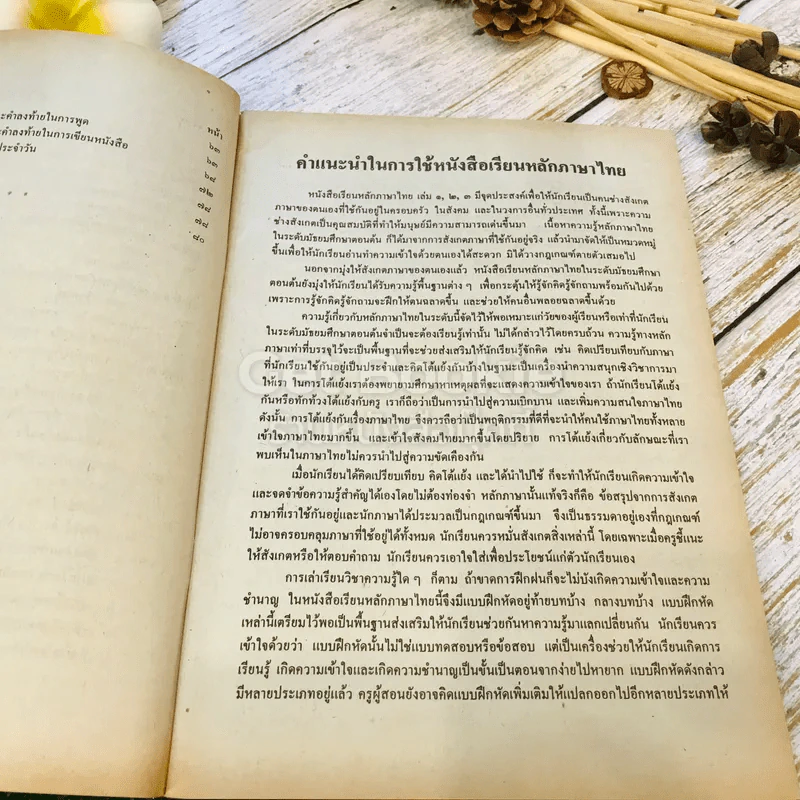 ะคำลงท้ายในการพูด
ะคำลงท้ายในการเขียนหนังสือ
ประจำวัน
หน้า
๖๓
๖๓
๖๙
๗๒
๗๘
๗๘
๘๐
คำแนะนำในการใช้หนังสือเรียนหลักภาษาไทย
หนังสือเรียนหลักภาษาไทย เล่ม ๑, ๒, ๓ มีจุดประสงค์เพื่อให้นักเรียนเป็นคนช่างสังเกต
ภาษาของตนเองที่ใช้กันอยู่ในครอบครัว ในสังคม และในวงการอื่นทั่วประเทศ ทั้งนี้เพราะความ
ช่างสังเกตเป็นคุณสมบัติที่ทำให้มนุษย์มีความสามารถเด่นขึ้นมา เนื้อหาความรู้หลักภาษาไทย
ในระดับมัธยมศึกษาตอนต้น ก็ได้มาจากการสังเกตภาษาที่ใช้กันอยู่จริง แล้วนำมาจัดให้เป็นหมวดหมู่
ขึ้นเพื่อให้นักเรียนอ่านทำความเข้าใจด้วยตนเองได้สะดวก มิได้วางกฎเกณฑ์ตายตัวเสมอไป
นอกจากมุ่งให้สังเกตภาษาของตนเองแล้ว หนังสือเรียนหลักภาษาไทยในระดับมัธยมศึกษา
ตอนต้นยังมุ่งให้นักเรียนได้รับความรู้พื้นฐานต่าง ๆ เพื่อกระตุ้นให้รู้จักคิดรู้จักถามพร้อมกันไปด้วย
เพราะการรู้จักคิดรู้จักถามจะฝึกให้ตนฉลาดขึ้น และช่วยให้คนอื่นพลอยฉลาดขึ้นด้วย
ความรู้เกี่ยวกับหลักภาษาไทยในระดับนี้จัดไว้ให้พอเหมาะแก่วัยของผู้เรียนหรือเท่าที่นักเรียน
ในระดับมัธยมศึกษาตอนต้นจำเป็นจะต้องเรียนรู้เท่านั้น ไม่ได้กล่าวไว้โดยครบถ้วน ความรู้ทางหลัก
ภาษาเท่าที่บรรจุไว้จะเป็นพื้นฐานที่จะช่วยส่งเสริมให้นักเรียนรู้จักคิด เช่น คิดเปรียบเทียบกับภาษา
ที่นักเรียนใช้กันอยู่เป็นประจำและคิดโต้แย้งกันบ้างในฐานะเป็นเครื่องนำความสนุกเชิงวิชาการมา
ให้เรา ในการโต้แย้งเราต้องพยายามศึกษาหาเหตุผลที่จะแสดงความเข้าใจของเรา ถ้านักเรียนโต้แย้ง
กันหรือทักท้วงโต้แย้งกับครู เราก็ถือว่าเป็นการนำไปสู่ความเบิกบาน และเพิ่มความสนใจภาษาไทย
ดังนั้น การโต้แย้งกันเรื่องภาษาไทย จึงควรถือว่าเป็นพฤติกรรมที่ดีที่จะนำให้คนใช้ภาษาไทยทั้งหลาย
เข้าใจภาษาไทยมากขึ้น และเข้าใจสังคมไทยมากขึ้นโดยปริยาย การโต้แย้งเกี่ยวกับลักษณะที่เรา
พบเห็นในภาษาไทยไม่ควรนำไปสู่ความขัดเคืองกัน
เมื่อนักเรียนได้คิดเปรียบเทียบ คิดโต้แย้ง และได้นำไปใช้ ก็จะทำให้นักเรียนเกิดความเข้าใจ
และจดจำข้อความรู้สำคัญได้เองโดยไม่ต้องท่องจำ หลักภาษานั้นแท้จริงก็คือ ข้อสรุปจากการสังเกต
ภาษาที่เราใช้กันอยู่และนักภาษาได้ประมวลเป็นกฎเกณฑ์ขึ้นมา จึงเป็นธรรมดาอยู่เองที่กฎเกณฑ์
ไม่อาจครอบคลุมภาษาที่ใช้อยู่ได้ทั้งหมด นักเรียนควรหมั่นสังเกตสิ่งเหล่านี้ โดยเฉพาะเมื่อครูชี้แนะ
ให้สังเกตหรือให้ตอบคำถาม นักเรียนควรเอาใจใส่เพื่อประโยชน์แก่ตัวนักเรียนเอง
การเล่าเรียนวิชาความรู้ใด ๆ ก็ตาม ถ้าขาดการฝึกฝนก็จะไม่บังเกิดความเข้าใจและความ
ชำนาญ ในหนังสือเรียนหลักภาษาไทยนี้จึงมีแบบฝึกหัดอยู่ท้ายบทบ้าง กลางบทบ้าง แบบฝึกหัด
เหล่านี้เตรียมไว้พอเป็นพื้นฐานส่งเสริมให้นักเรียนช่วยกันหาความรู้มาแลกเปลี่ยนกัน นักเรียนควร
เข้าใจด้วยว่า แบบฝึกหัดนั้นไม่ใช่แบบทดสอบหรือข้อสอบ แต่เป็นเครื่องช่วยให้นักเรียนเกิดการ
เรียนรู้ เกิดความเข้าใจและเกิดความชำนาญเป็นขั้นเป็นตอนจากง่ายไปหายาก แบบฝึกหัดดังกล่าว
มีหลายประเภทอยู่แล้ว ครูผู้สอนยังอาจคิดแบบฝึกหัดเพิ่มเติมให้แปลกออกไปอีกหลายประเภทให้